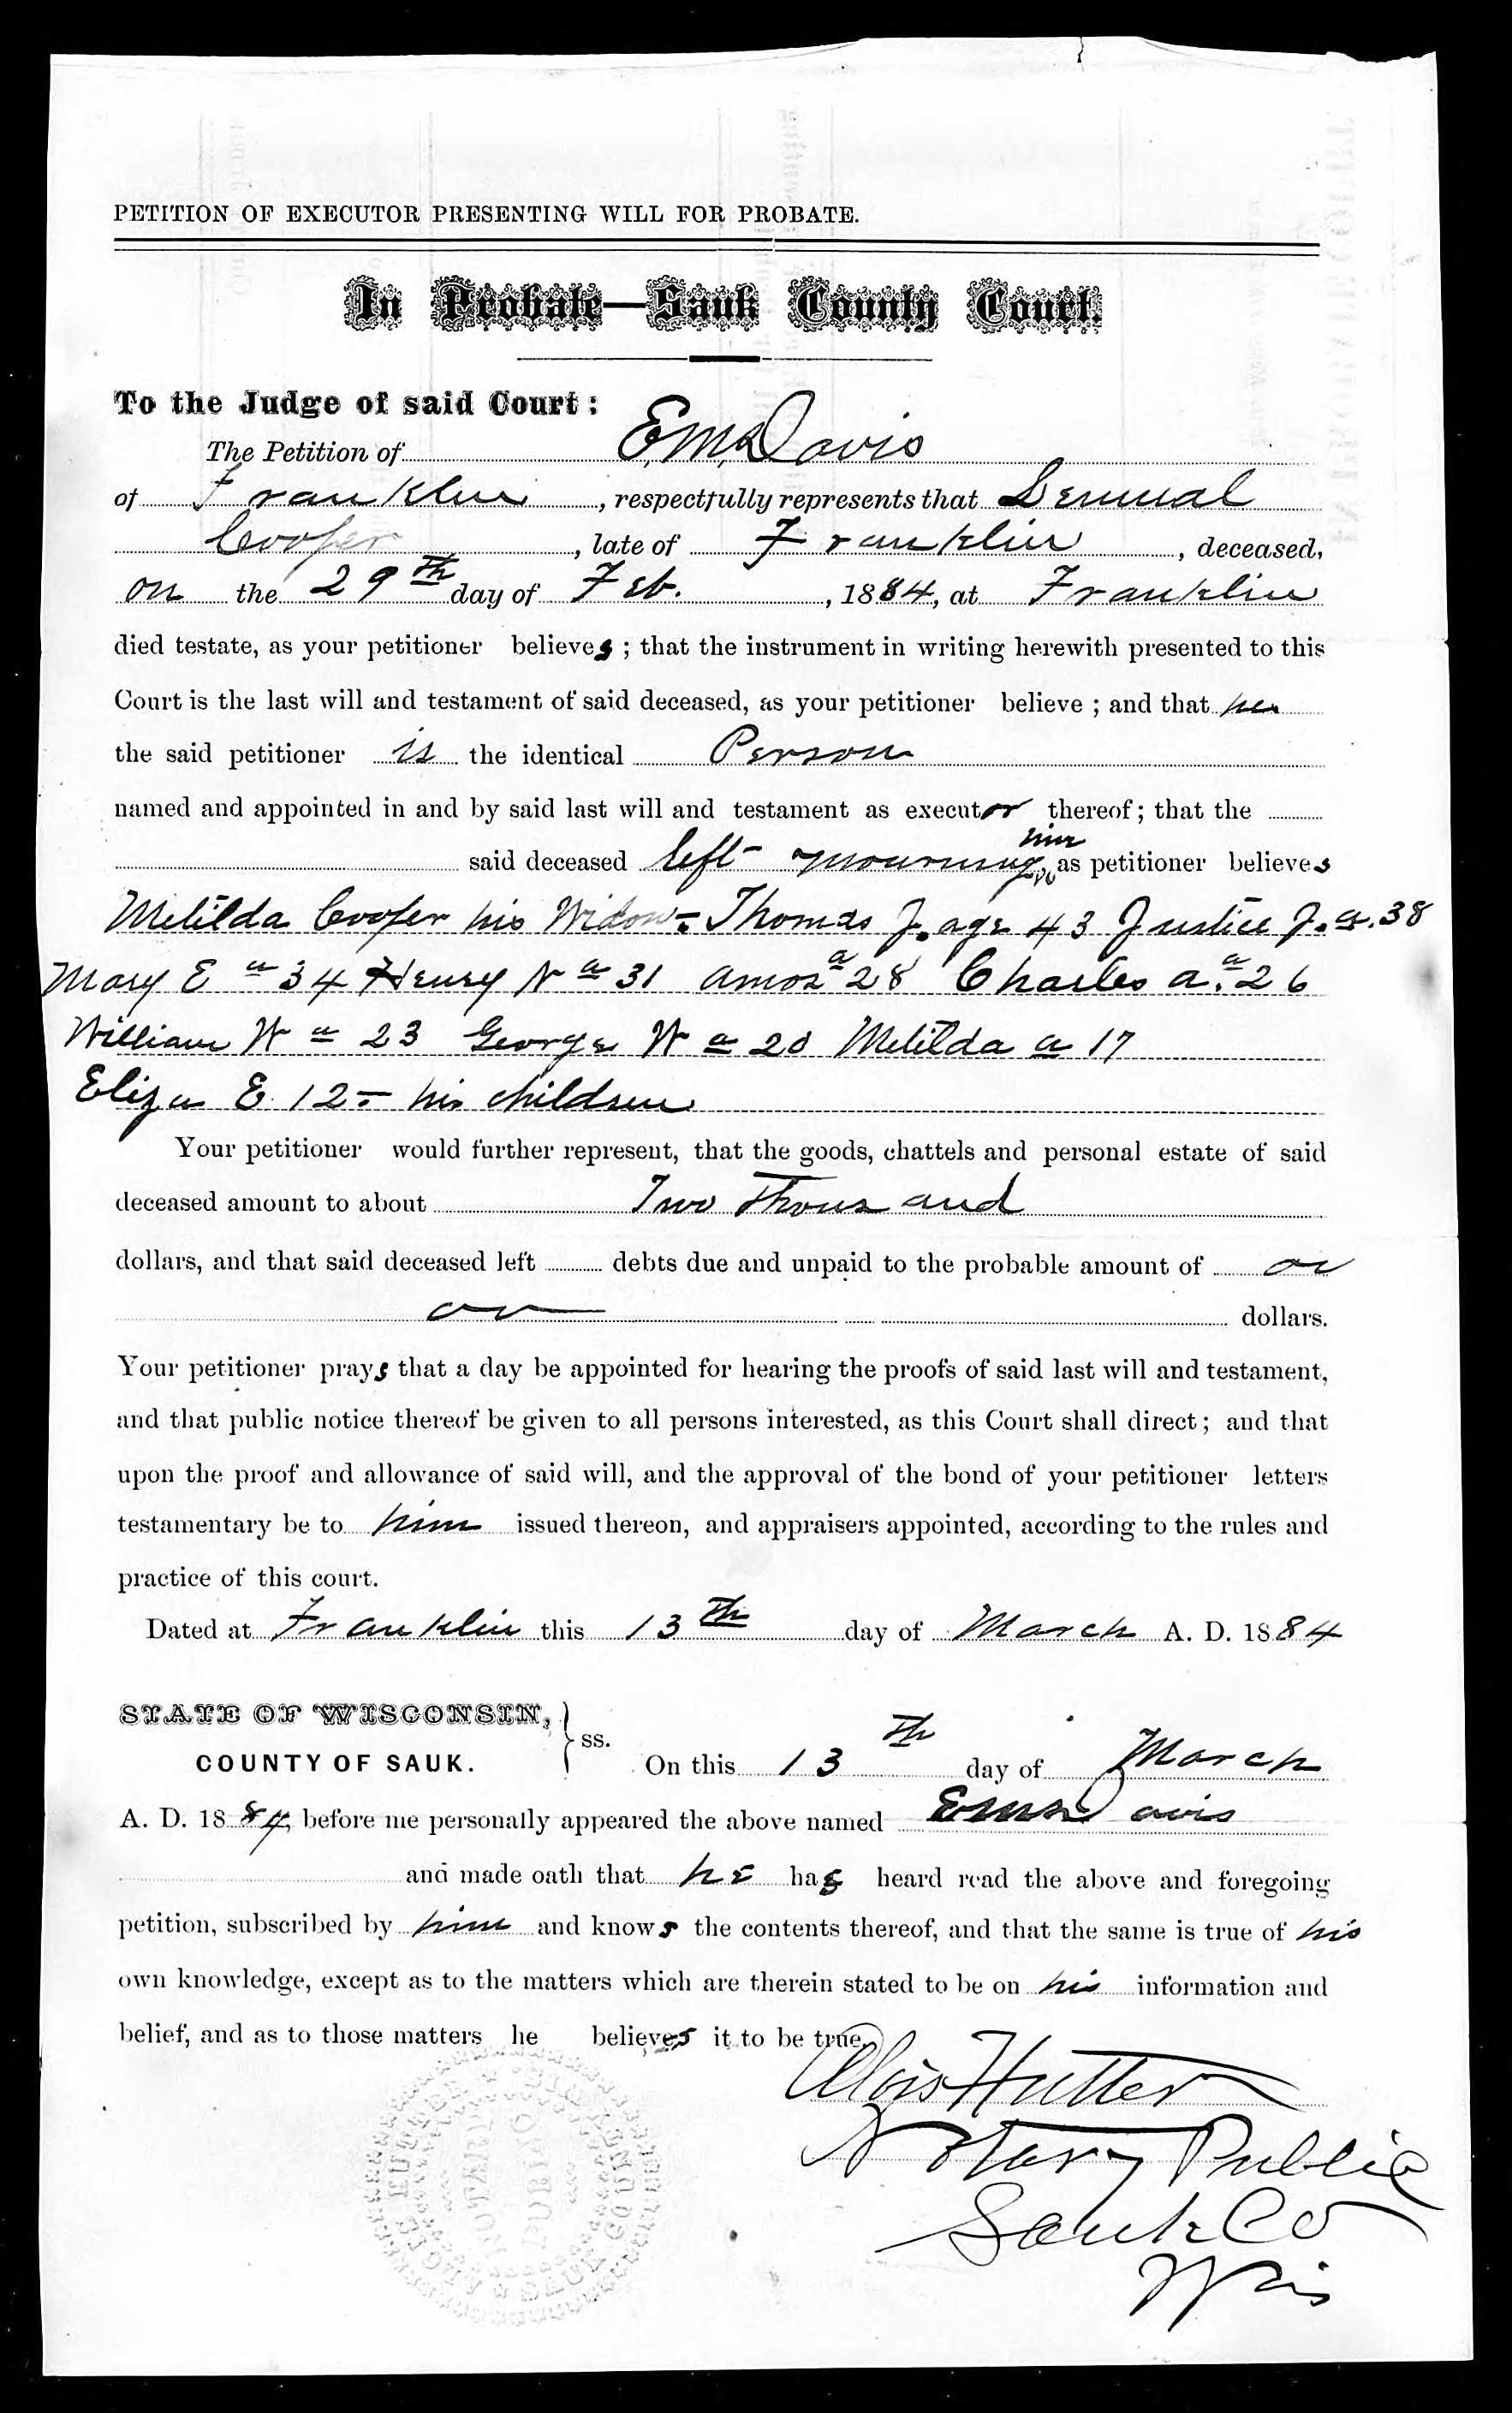 PETITION OF EXECUTOR PRESENTING WILL FOR PROBATE.
In Probate—Sauk County Court.
To the Judge of said Court:
The Petition of E. M. Davis
of Franklin, respectfully represents that Lemual
Cooper, late of Franklin, deceased,
on the 29th day of Feb. , 1884, at Franklin
died testate, as your petitioner believes; that the instrument in writing herewith presented to this
Court is the last will and testament of said deceased, as your petitioner believe; and that he
the said petitioner is the identical Person
named and appointed in and by said last will and testament as executor thereof; that the
said deceased left mourning him, as petitioner believes
Melilda Cooper his Widow - Thomas J. age 43 Justice J. a. 38
Mary E a 34 Henry N a 31 Amos a 28 Charles A. a 26
William W a 23 George W a 20 Melilda a 17
Eliza E. 12 - his children
Your petitioner would further represent, that the goods, chattels and personal estate of said
deceased amount to about Two Thousand
dollars, and that said deceased left debts due and unpaid to the probable amount of
dollars.
Your petitioner prays that a day be appointed for hearing the proofs of said last will and testament,
and that public notice thereof be given to all persons interested, as this Court shall direct; and that
upon the proof and allowance of said will, and the approval of the bond of your petitioner letters
testamentary be to him issued thereon, and appraisers appointed, according to the rules and
practice of this court.
Dated at Franklin this 13th day of March A. D. 1884
STATE OF WISCONSIN,
COUNTY OF SAUK. } ss. On this 13th day of March
A. D. 1884, before me personally appeared the above named E M Davis
and made oath that he has heard read the above and foregoing
petition, subscribed by him and knows the contents thereof, and that the same is true of his
own knowledge, except as to the matters which are therein stated to be on his information and
belief, and as to those matters he believes it to be true.
Alois Hutter
Notary Public
Sauk Co
Wis
NOTARY PUBLIC
SAUK COUNTY